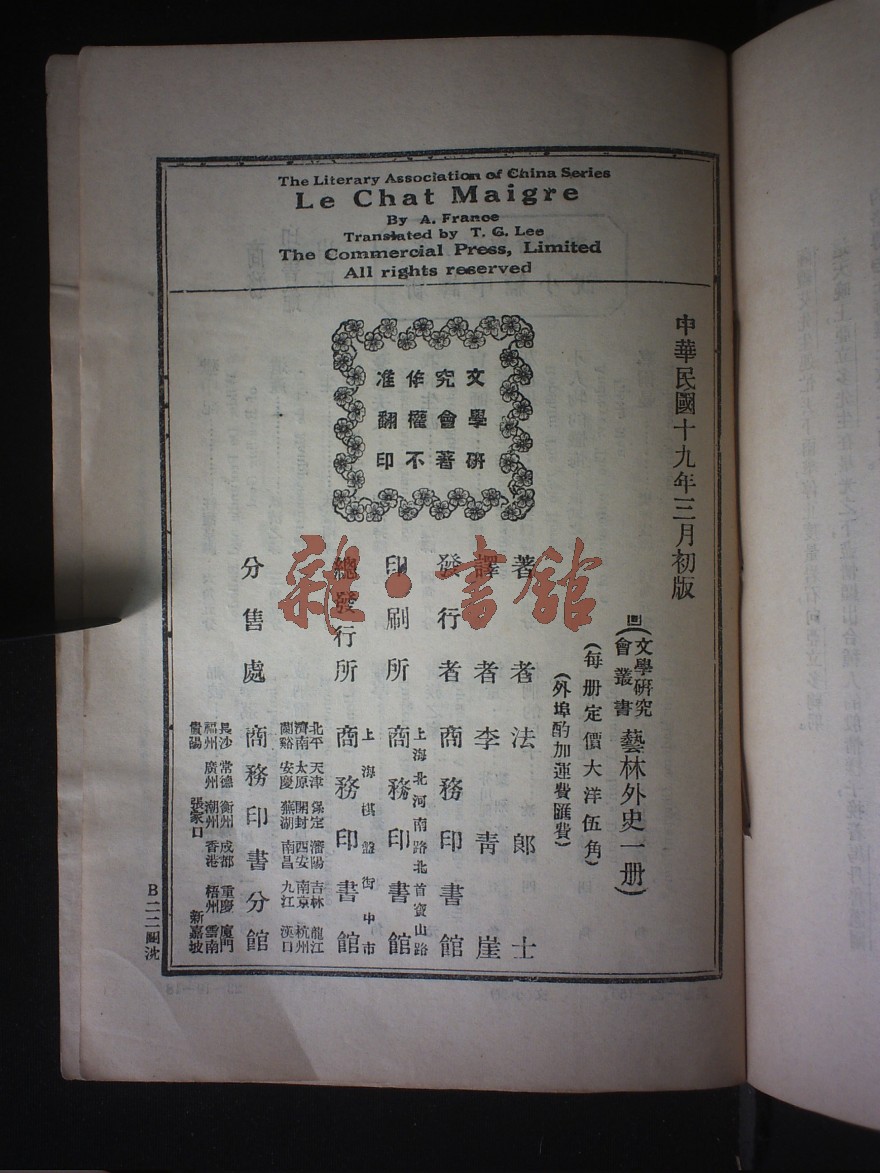 The Literary Association of China Series
Le Chat Maigre
By A. France
Translated by T. G. Lee
The Commercial Press, Limited
All rights reserved
中華民國十九年三月初版
文學研
究會著
作權不
准翻印
(文學研究會叢書 藝林外史一册)
(每册定價大洋伍角)
(外埠酌加運費匯費)
著者 法郎士
譯者 李青崖
發行者 商務印書館
印刷所 上海北河南路北首寶山路 商務印書館
總發行所 上海棋盤街中市 商務印書館
分售處 商務印書分館
北平 天津 保定 瀋陽 吉林 龍江
濟南 太原 開封 西安 南京 杭州
蘭谿 安慶 蕪湖 南昌 九江 漢口
長沙 常德 衡州 成都 重慶 廈門
福州 廣州 潮州 香港 梧州 雲南
貴陽 張家口 新嘉坡
B二二
沈
雜·書館